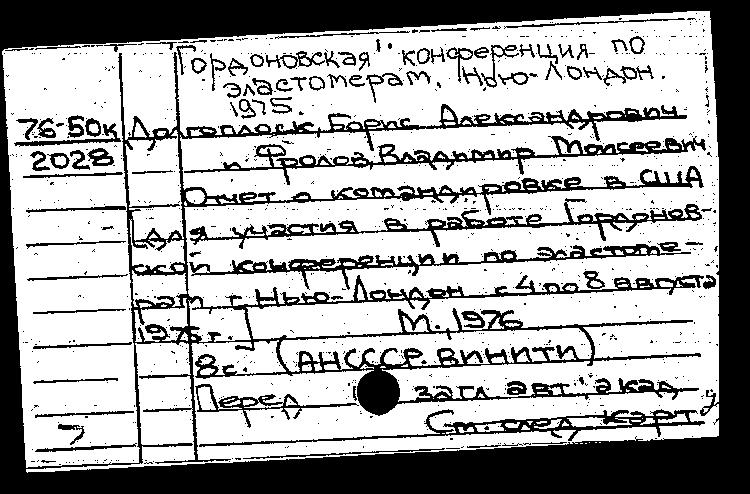 "Гордоновская" конференция по
эластомерам. Нью-Лондон.
1975.
76-50к Долгоплоск, Борис Александрович
2028 и Фролов, Владимир Моисеевич
Отчет о командировке в США
[для участия в работе Гордонов-
ской конференции по эластоме-
рам, г. Нью-Лондон с 4 по 8 августа
1975 г.] М., 1976
8 с. (АН СССР. ВИНИТИ)
Перед загл. авт.: акад.
См. след. карт.